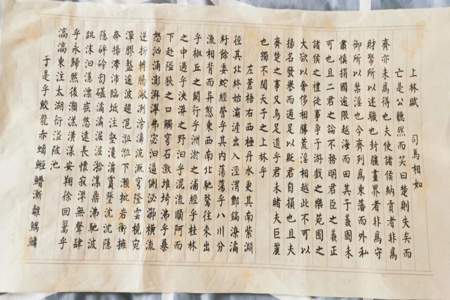 上林賦 司馬相如
亡是公听然而笑曰楚則失矣而
齊亦未為得也夫使諸侯納貢者非為
財幣所以述職也封疆畫界者非為守
禦所以禁淫也今齊列為東藩而外私
肅慎捐國逾限越海而田其于義固未
可也且二君之論不務明君臣之義正
諸侯之禮徒事爭于游戲之樂苑囿之
大欲以奢侈相勝荒淫相越此不可以
揚名發譽而適足以貶君自損也且夫
齊楚之事又烏足道乎君未睹夫巨麗
也獨不聞天子之上林乎
左蒼梧右西極丹水更其南紫淵
徑其北終始灞滻出入涇渭酆鎬潦潏
紆餘委蛇經營乎其內蕩蕩乎八川分
流相背而異態東西南北馳騖往來出
乎椒丘之闕行乎洲淤之浦經乎桂林
之中過乎泱漭之野汩乎混流順阿而
下赴隘陿之口觸穹石激堆埼沸乎暴
怒洶涌澎湃滭弗宓汩逼側泌瀄橫流
逆折轉騰潎洌滂濞沆溉穹隆雲橈宛
潬膠盭逾波趨浥蒞蒞下瀨批岩衝擁
奔揚滯沛臨坻注壑瀺灂霣墜沈沈隱
隱砰磅訇礚潏潏淈淈湁潗鼎沸馳波
跳沫汩漂疾悠遠長懷寂漻無聲肆
乎永歸然後灝溔潢漾安翔徐回翯乎
滈滈東注太湖衍溢陂池
于是乎鮫龍赤螭漸離鰅